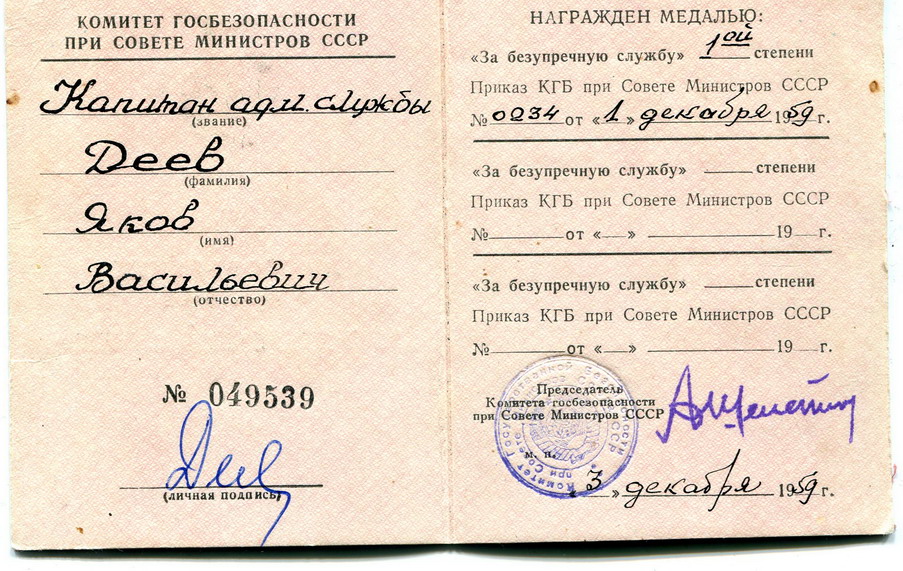 КОМИТЕТ ГОСБЕЗОПАСНОСТИ
ПРИ СОВЕТЕ МИНИСТРОВ СССР
Капитан адм. службы
(звание)
Деев
(фамилия)
Яков
(имя)
Васильевич
(отчество)
№ 049539
(личная подпись)
НАГРАЖДЕН МЕДАЛЬЮ:
«За безупречную службу» 1ой степени
Приказ КГБ при Совете Министров СССР
№ 0234 от «1» декабря 1959 г.
«За безупречную службу» степени
Приказ КГБ при Совете Министров СССР
№ от « » 19 г.
«За безупречную службу» степени
Приказ КГБ при Совете Министров СССР
№ от « » 19 г.
Председатель
Комитета госбезопасности
при Совете Министров СССР
м. п.
«3» декабря 1959 г.